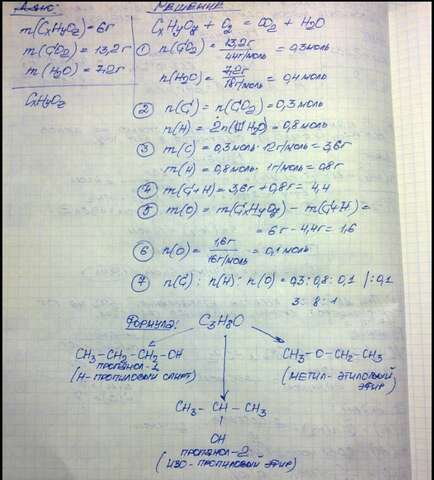 Дано:
m(CxHyOz) = 6г
m(CO2) = 13,2г
m(H2O) = 7,2г
CxHyOz
РЕШЕНИЕ
CxHyOy + O2 = CO2 + H2O
① n(CO2) = 13,2г / 44г/моль = 0,3моль
n(H2O) = 7,2г / 18г/моль = 0,4моль
② n(C) = n(CO2) = 0,3моль
n(H) = 2n(H2O) = 0,8моль
③ m(C) = 0,3моль · 12г/моль = 3,6г
m(H) = 0,8моль · 1г/моль = 0,8г
④ m(C+H) = 3,6г + 0,8г = 4,4
⑤ m(O) = m(CxHyOy) - m(C+H) =
= 6г - 4,4г = 1,6
⑥ n(O) = 1,6г / 16г/моль = 0,1моль
⑦ n(C) : n(H) : n(O) = 0,3 : 0,8 : 0,1 |:0,1
3 : 8 : 1
Формула: C3H8O
CH3-CH2-CH2-OH
ПРОПАНОЛ-1
(Н-ПРОПИЛОВЫЙ СПИРТ)
CH3-O-CH2-CH3
(МЕТИЛ-ЭТИЛОВЫЙ
ЭФИР)
CH3-CH-CH3
OH
ПРОПАНОЛ-2
(ИЗО-ПРОПИЛОВЫЙ ЭФИР)